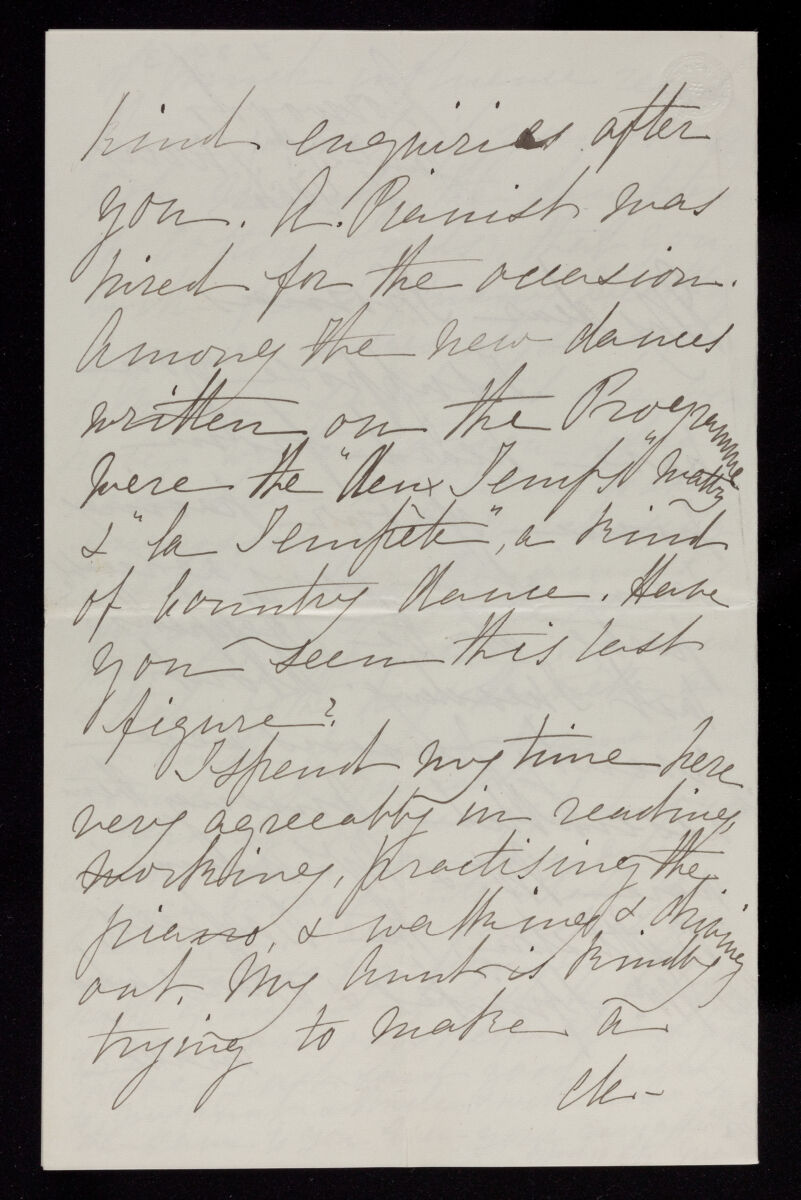 kind enquiries after
you. A Pianist was
hired for the occasion.
Among the new dances
written on the Programme
were the "Deux Temps" waltz
& "la Tempête", a kind
of Country dance. Have
you seen this last
figure?
I spend my time here
very agreeably in reading,
working, practising the
piano, & walking & driving
out. My Aunt is kindly
trying to make a
cle-